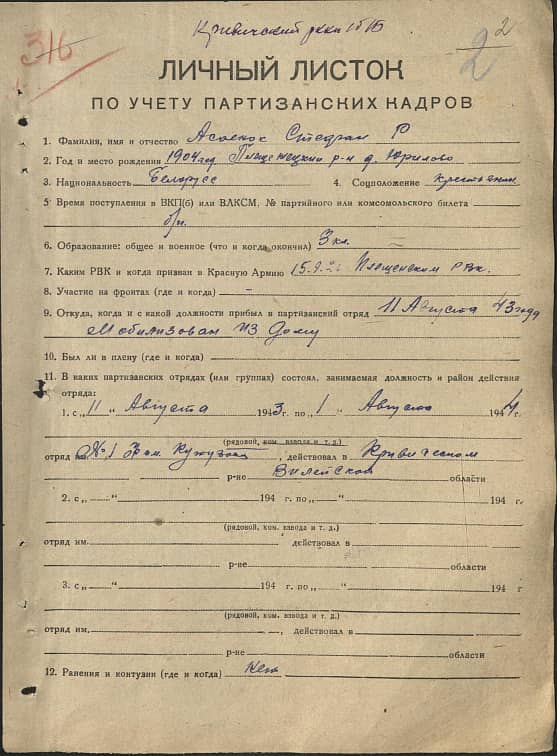 316
2
2
ЛИЧНЫЙ ЛИСТОК
ПО УЧЕТУ ПАРТИЗАНСКИХ КАДРОВ
1. Фамилия, имя и отчество Стефан Р
2. Год и место рождения 1904 год Плещеницкий р-н д. Юрилово
3. Национальность Белорусс 4. Соцположение крестьянин
5 Время поступления в ВКП(б) или ВЛКСМ, № партийного или комсомольского билета
б/п.
6. Образование: общее и военное (что и когда окончил) 3 кл.
7. Каким РВК и когда призван в Красную Армию РВК.
8. Участие на фронтах (где и когда) –
9. Откуда, когда и с какой должности прибыл в партизанский отряд 11 Августа 43 года
Мобилизован из дому
10. Был ли в плену (где и когда)
11. В каких партизанских отрядах (или группах) состоял, занимаемая должность и район действия
отряда:
1. с „11 “ Августа 1943г. по „1 “ Августа 1944г.
(рядовой, ком. взвода и т. д.)
отряд им. №1 , действовал в Кривическом
р-не Вилейской области
2. с „ “ 194 г. по „ “ 194 г.
(рядовой, ком. взвода и т. д.)
отряд им. действовал в
р-не области
3. с „ “ 194 г. по „ “ 194 г
(рядовой, ком. взвода и т. д.)
отряд им. , действовал в
р-не области
12. Ранения и контузии (где и когда) Нет